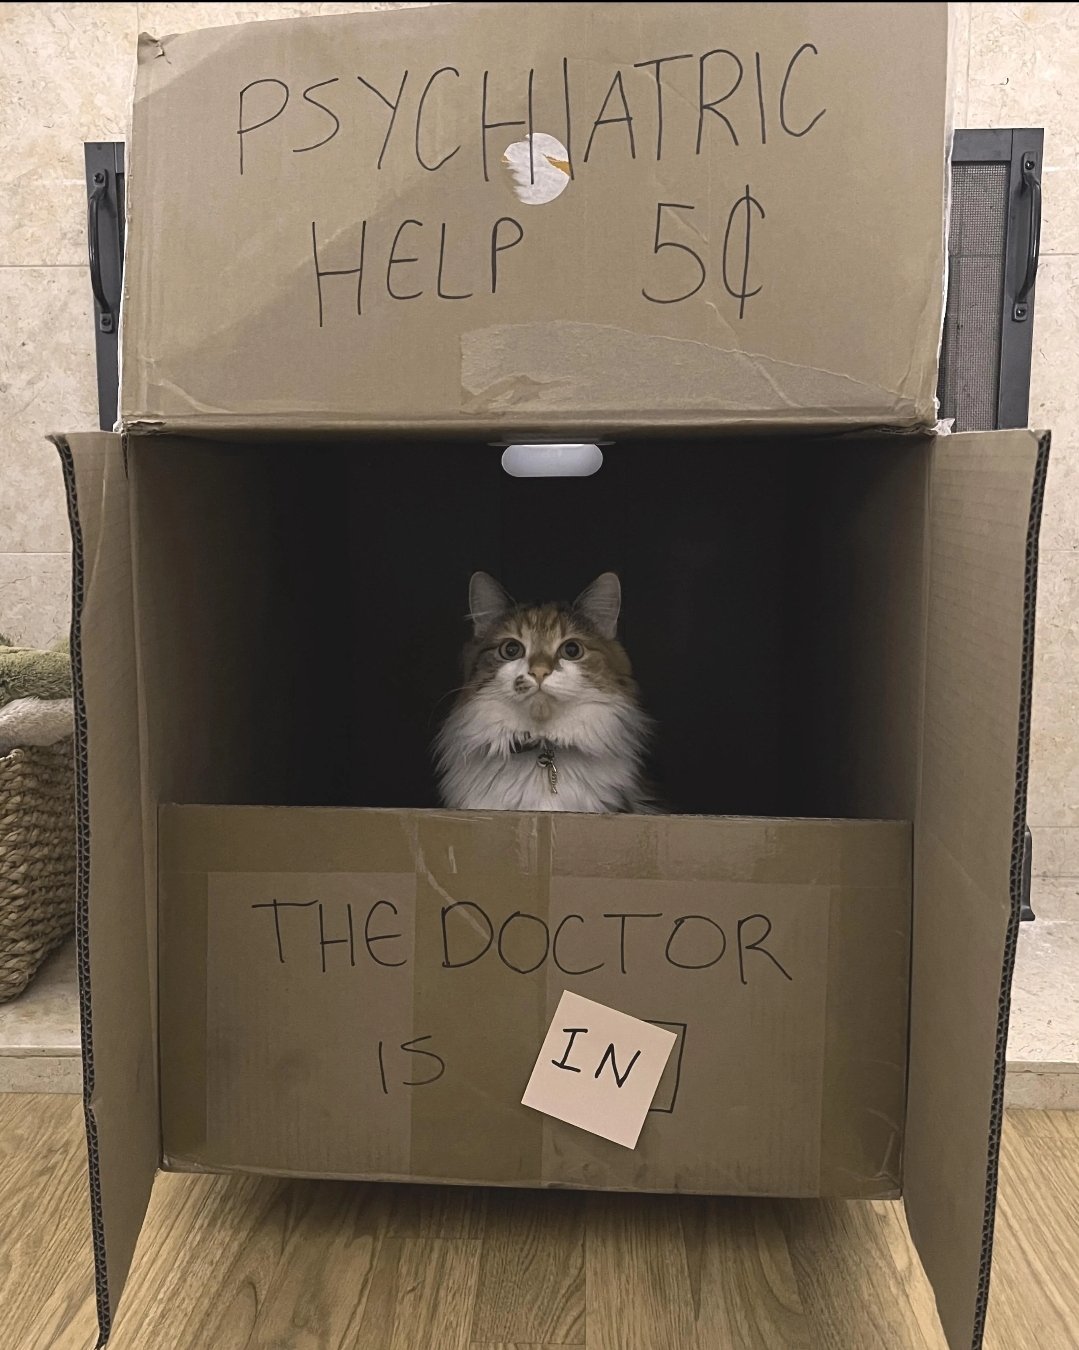 PSYCHIATRIC
HELP 5¢
THE DOCTOR
IS IN